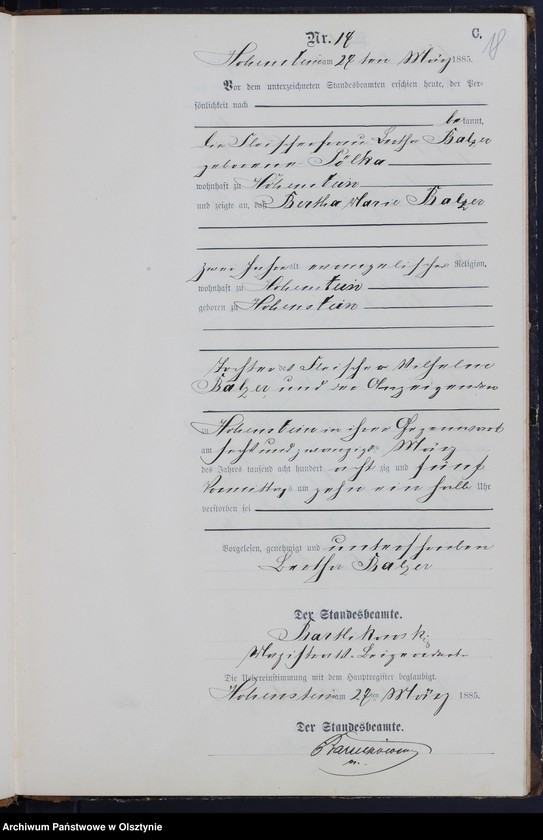 Nr. 18
C.
18
Hohenstein am 27 ten März 1885.
Vor dem unterzeichneten Standesbeamten erschien heute, der Per-
sönlichkeit nach
bekannt,
die Fleischerfrau Bertha Balzer
geborene
wohnhaft zu Hohenstein
und zeigte an, daß Bertha Marie Balzer
zwei Jahre alt evangelischer Religion,
wohnhaft zu Hohenstein
geboren zu Hohenstein
Tochter des Fleischer Wilhelm
Balzer und der Anzeigenden
zu Hohenstein in ihrer Gegenwart
am sechsundzwanzigsten März
des Jahres tausend acht hundert achtzig und fünf
Vormittags um zehn ein halb Uhr
verstorben sei
Vorgelesen, genehmigt und unterschrieben
Bertha Balzer
Der Standesbeamte.
Magistrats-Beigeordneter
Die Uebereinstimmung mit dem Hauptregister beglaubigt.
Hohenstein am 27ten März 1885.
Der Standesbeamte.
Archiwum Państwowe w Olsztynie